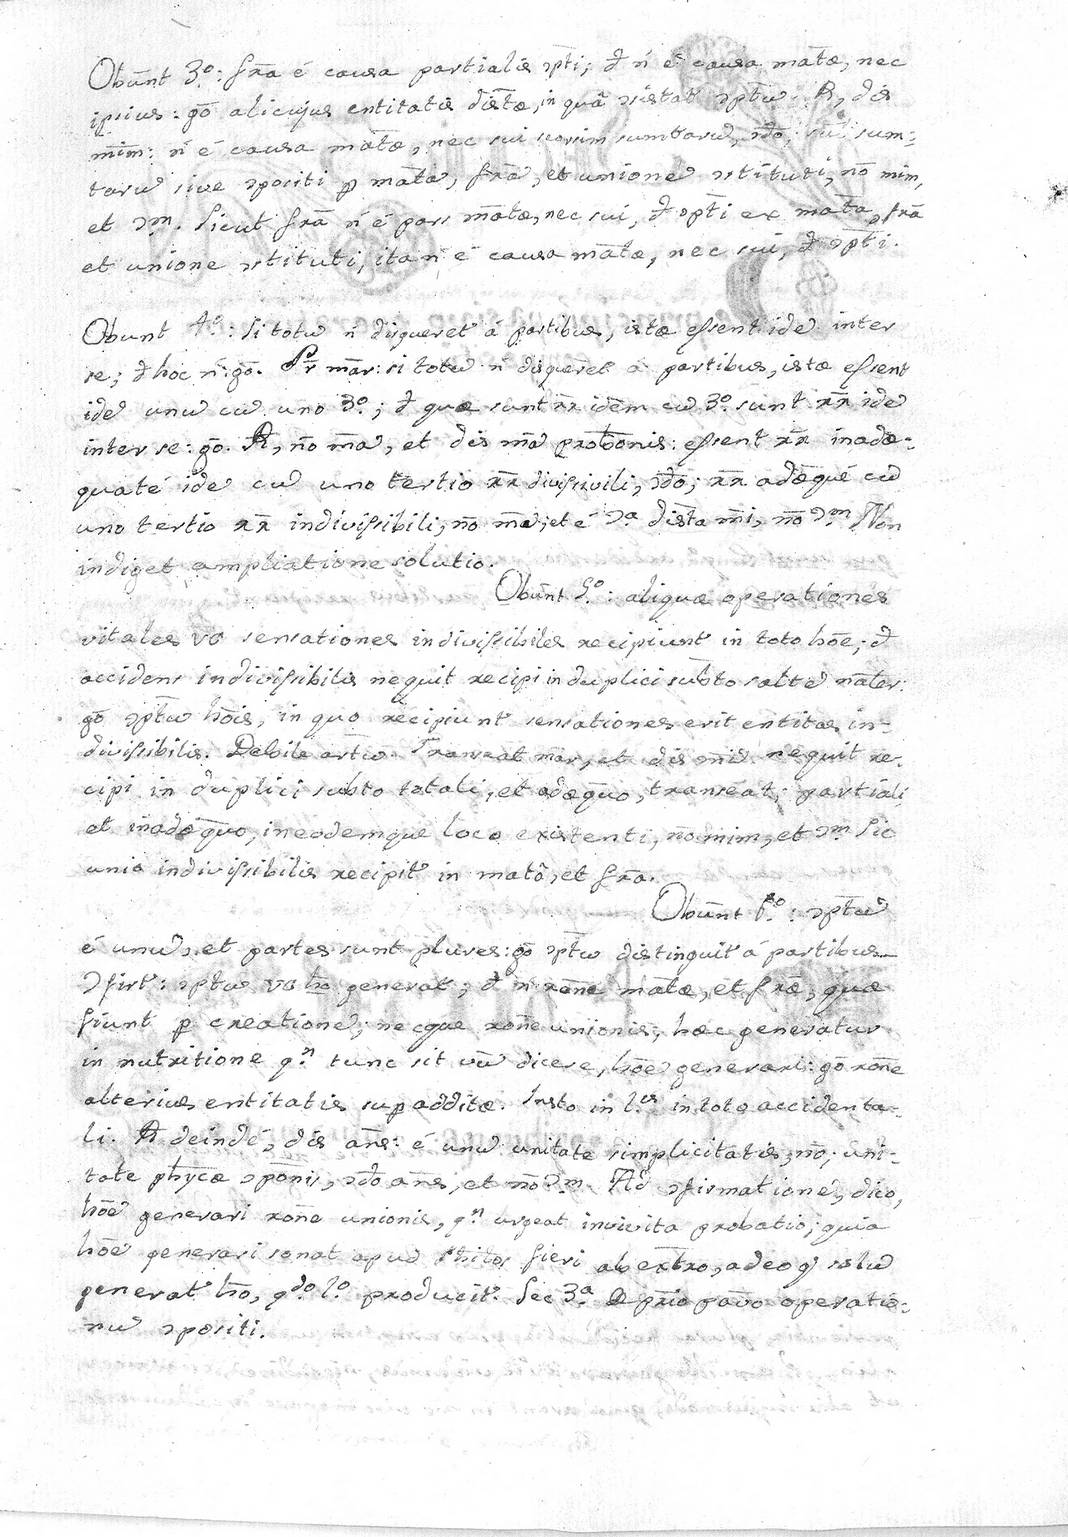 Obūnt 3º: frā é causa partialis ɔpti; đ ń é causa matæ, nec
ipsius: gō alicujus entitatis distæ, in quâ ɔsistat ɔptu. R, dis
mim: ń é causa matæ, nec sui seorsim sumtorũ, ɔdo; sui sum-
torũ sive ɔpositi p matã, frã, et unionẽ ɔstituti, nō mim,
et ɔm. Sicut frã ń é pars matæ, nec sui, đ ɔpti ex matã, frã
et unione ɔstituti, ita ń é causa matæ, nec sui, đ ɔpti.
Obunt 4º: si totũ ń disqueret á partibus, istæ essent idẽ inter
se; đ hoc ń: gō. Pr mar: si totũ ń disqueret á partibus, istæ essent
idẽ unũ cũ uno 3º; đ quæ sunt rr idẽm cũ 3º sunt rr idẽ
inter se: gō. R, nō mā, et dis mā probōnis: essent rr inadæ-
quaté idẽ cũ uno tertio rr divissivili, ɔdo; rr adæqué cũ
uno tertio rr indivissibili, nō mā; et é ɔa dista mi, nō ɔm Non
indiget ampliatione solutio.
Obūnt 5º: aliquæ operationes
vitales vg sensationes indivissibiles recipiunt in toto hōe; đ
accidens indivissibilis nequit recipi in duplici subto saltẽ mater:
gō ɔptũ hōis, in quo recipiunt sensationes erit entitas in-
divissibilis. Debile artũ. Transeat mar, et dis mid nequit re-
cipi in duplici subto totali, et adæquo, transéat; partiali
et inadæquo, in eodemque loco existenti, nō mim, et ɔm Sic
unio indivissibilis recipit in matâ, et frā.
Obūnt 6º: ɔptũ
é unũ, et partes sunt plures: gō ɔptũ distinguit á partibus
ɔfirt: ɔptũ vg hō generat; đ ń rone matæ, et fræ, quæ
fiunt p creationẽ; neque rone unionis, hæc generatur
in nutritione qn tunc sit vũ dicere, hōe generari: gō rone
alterius entitatis supadditæ. Insto in tis in toto accidenta-
li. R deindé, dis ans: é unũ unitate simplicitatis, nō; uni-
tate phycæ ɔponis, ɔdo ans, et nō ɔm. Ad ɔfirmationẽ, dico,
hōe generari rone unionis, qn urgeat invivita probatio; quia
hōe generari sonat apud fieri ab extro, adeo q solũ
generat hō, qdo 1º producit. Sec 3a operatio-
nũ ɔpositi.